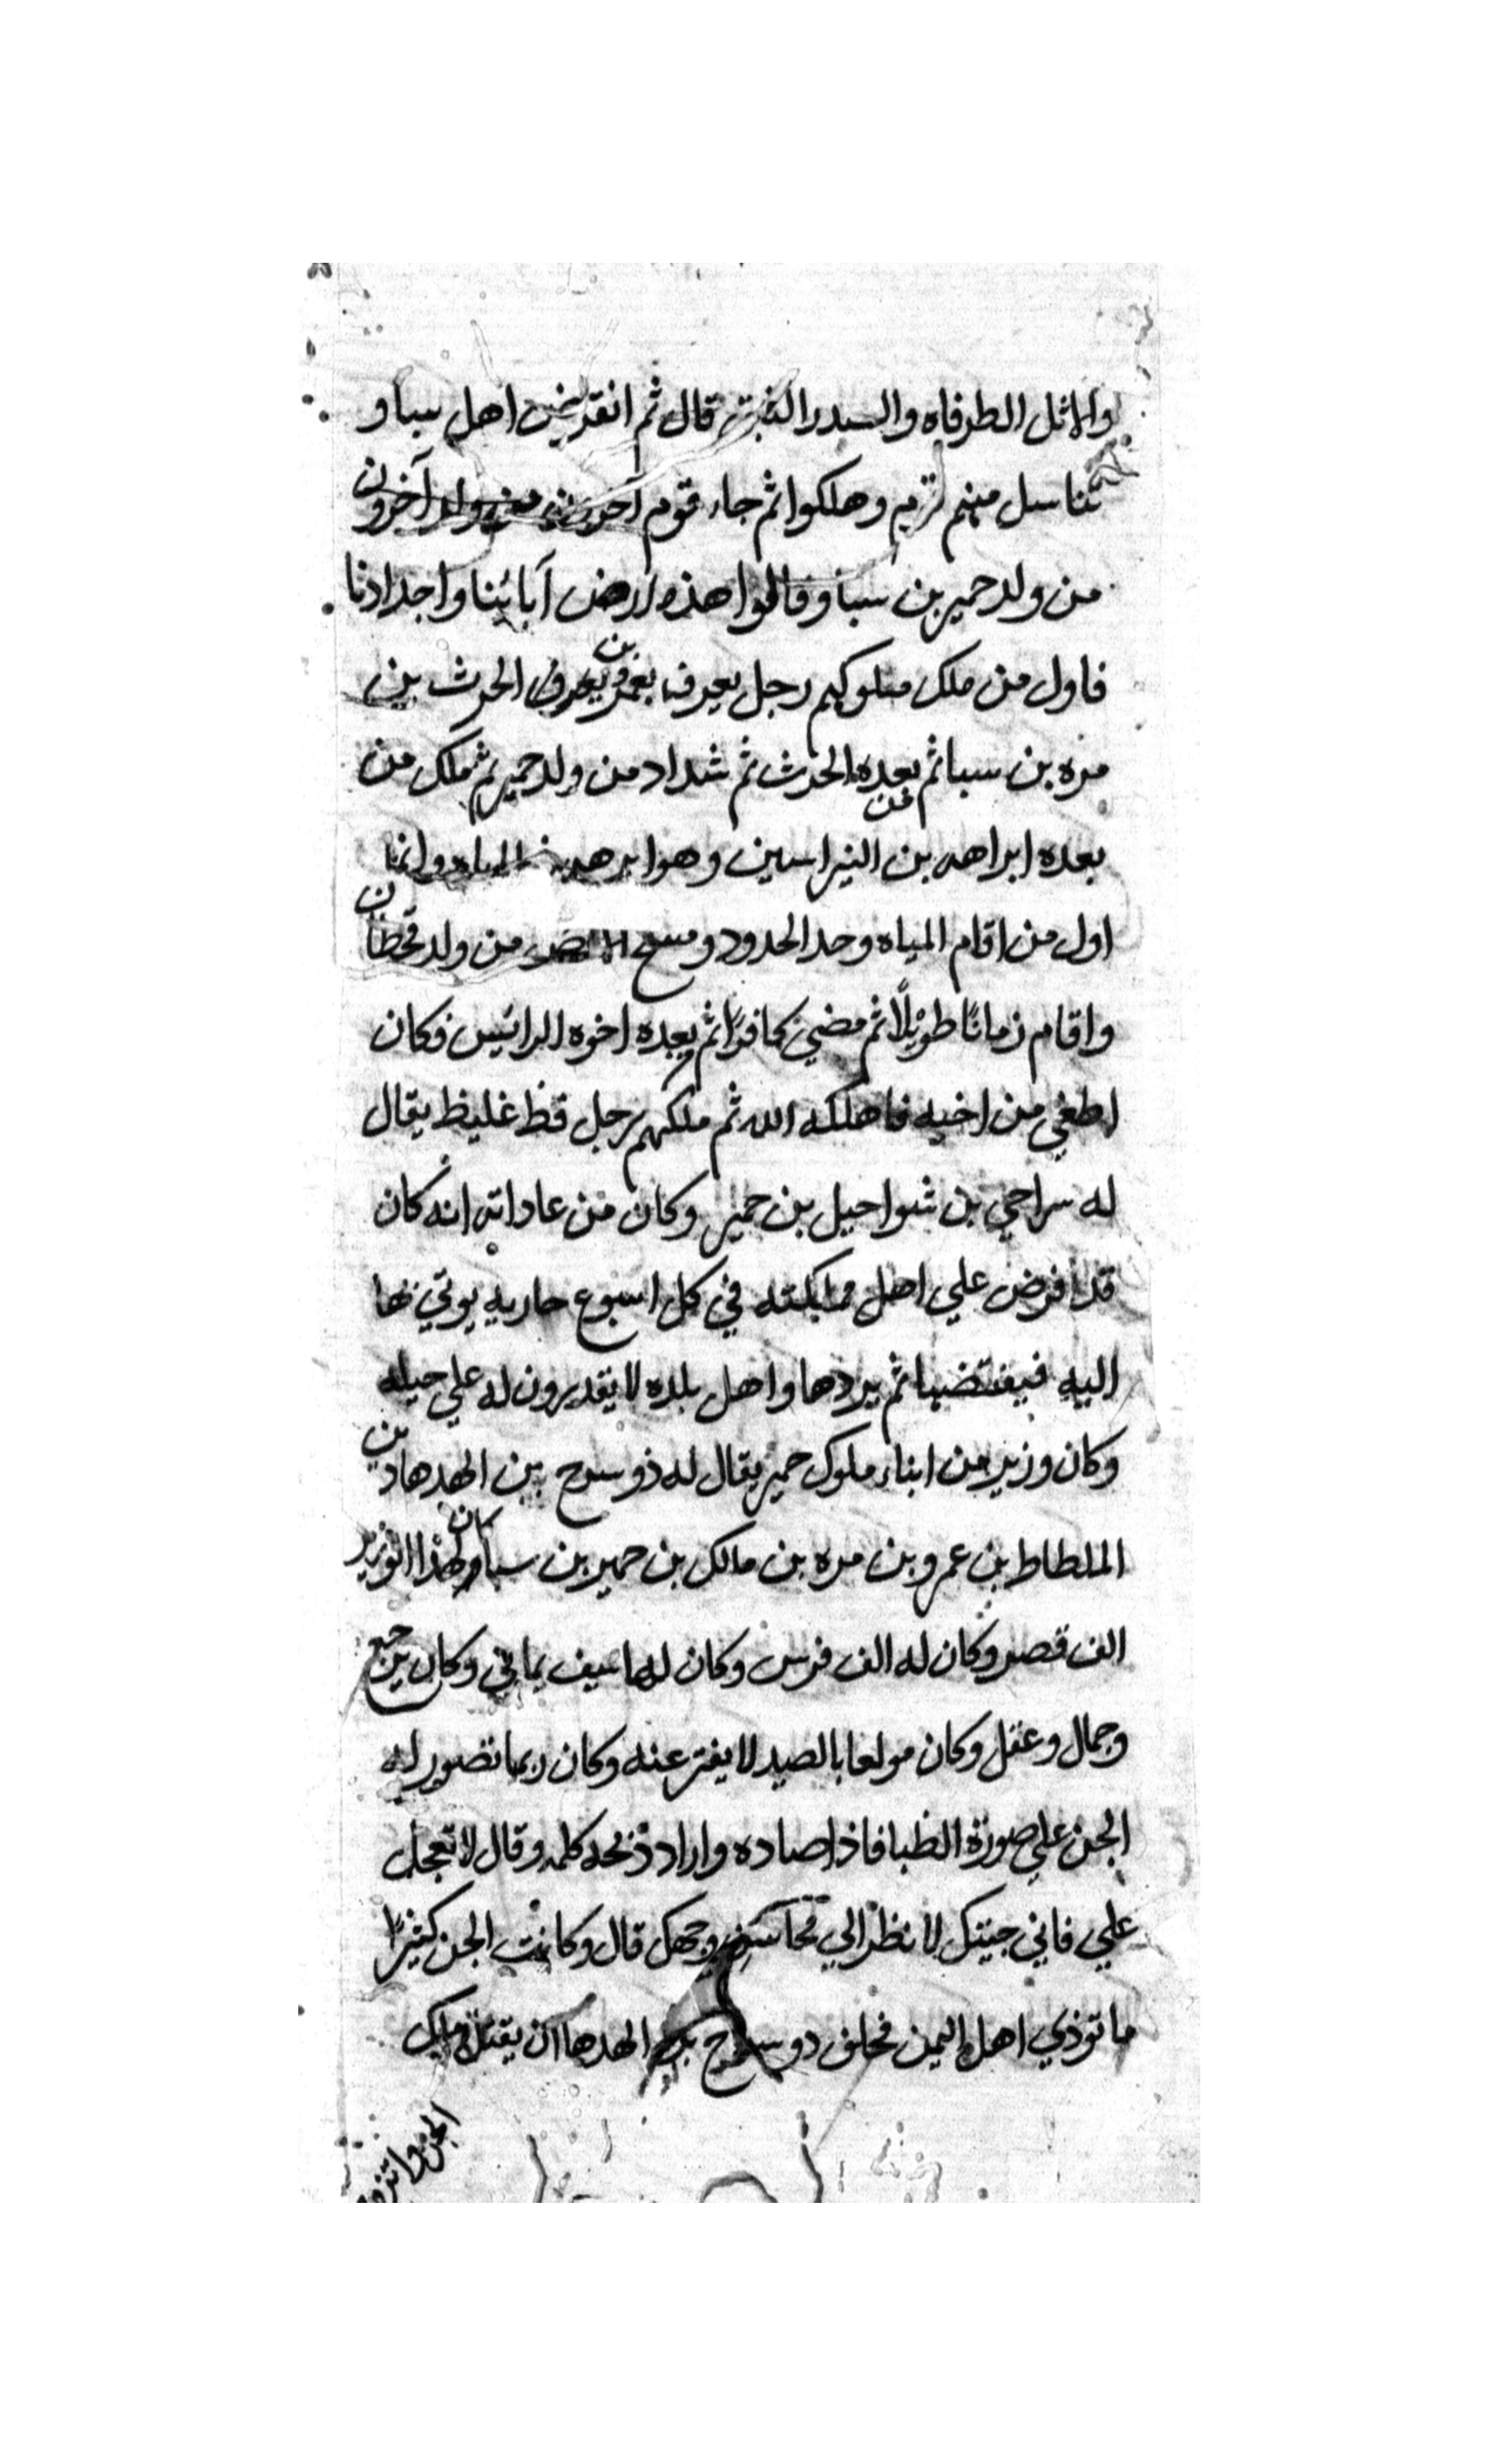 والاثل الطرفاه والسدر النبق قال ثم انقرض اهل سبا و
تناسل منهم وهلكوا ثم جاء قوم آخرون
من ولد حمير بن سبا وقالوا هذه ارض آبائنا واجدادنا
فاول من ملك ملوكهم رجل يعرف بعمرو بن الحرث بن
مره بن سبا ثم من بعده الحرث ثم شداد من ولد حمير ثم ملك من
بعده ابراهه بن وهو ابرهه وانما
اول من اقام المياه وحد الحدود ومسح الارض من ولد قحطان
واقام زمانًا طويلًا ثم مضي كافرًا ثم بعده اخوه الرائيس فكان
اطغي من اخيه فاهلكه الله ثم ملكهم رجل فظ غليظ يقال
له سراحي بن شواحيل بن حمير وكان من عاداته انه كان
قد افرض علي اهل مملكته في كل اسبوع جاريه يوتي بها
اليه فيفتضها ثم يردها واهل بلده لا يقدرون له علي حيله
وكان وزير من ابناء ملوك حمير يقال له ذو سرح بن الهدهاد بن
الملطاط بن عمرو بن مره بن مالك بن حمير بن سبا وكان لهذا الوزير
الف قصر وكان له الف فرس وكان له سيف يماني وكان
وجمال وعقل وكان مولعا بالصيد لا يفتر عنه وكان ربما تصور له
الجن علي صورة الظبا فاذا صاده واراد ذبحه كلمه وقال لا تعجل
علي فاني جيتك لانظر الي محاسن وجهك قال وكانت الجن كثيرًا
ما توذي اهل اليمن فحلف ذو سرح بن الهدها ان يقتل ملك
الجن